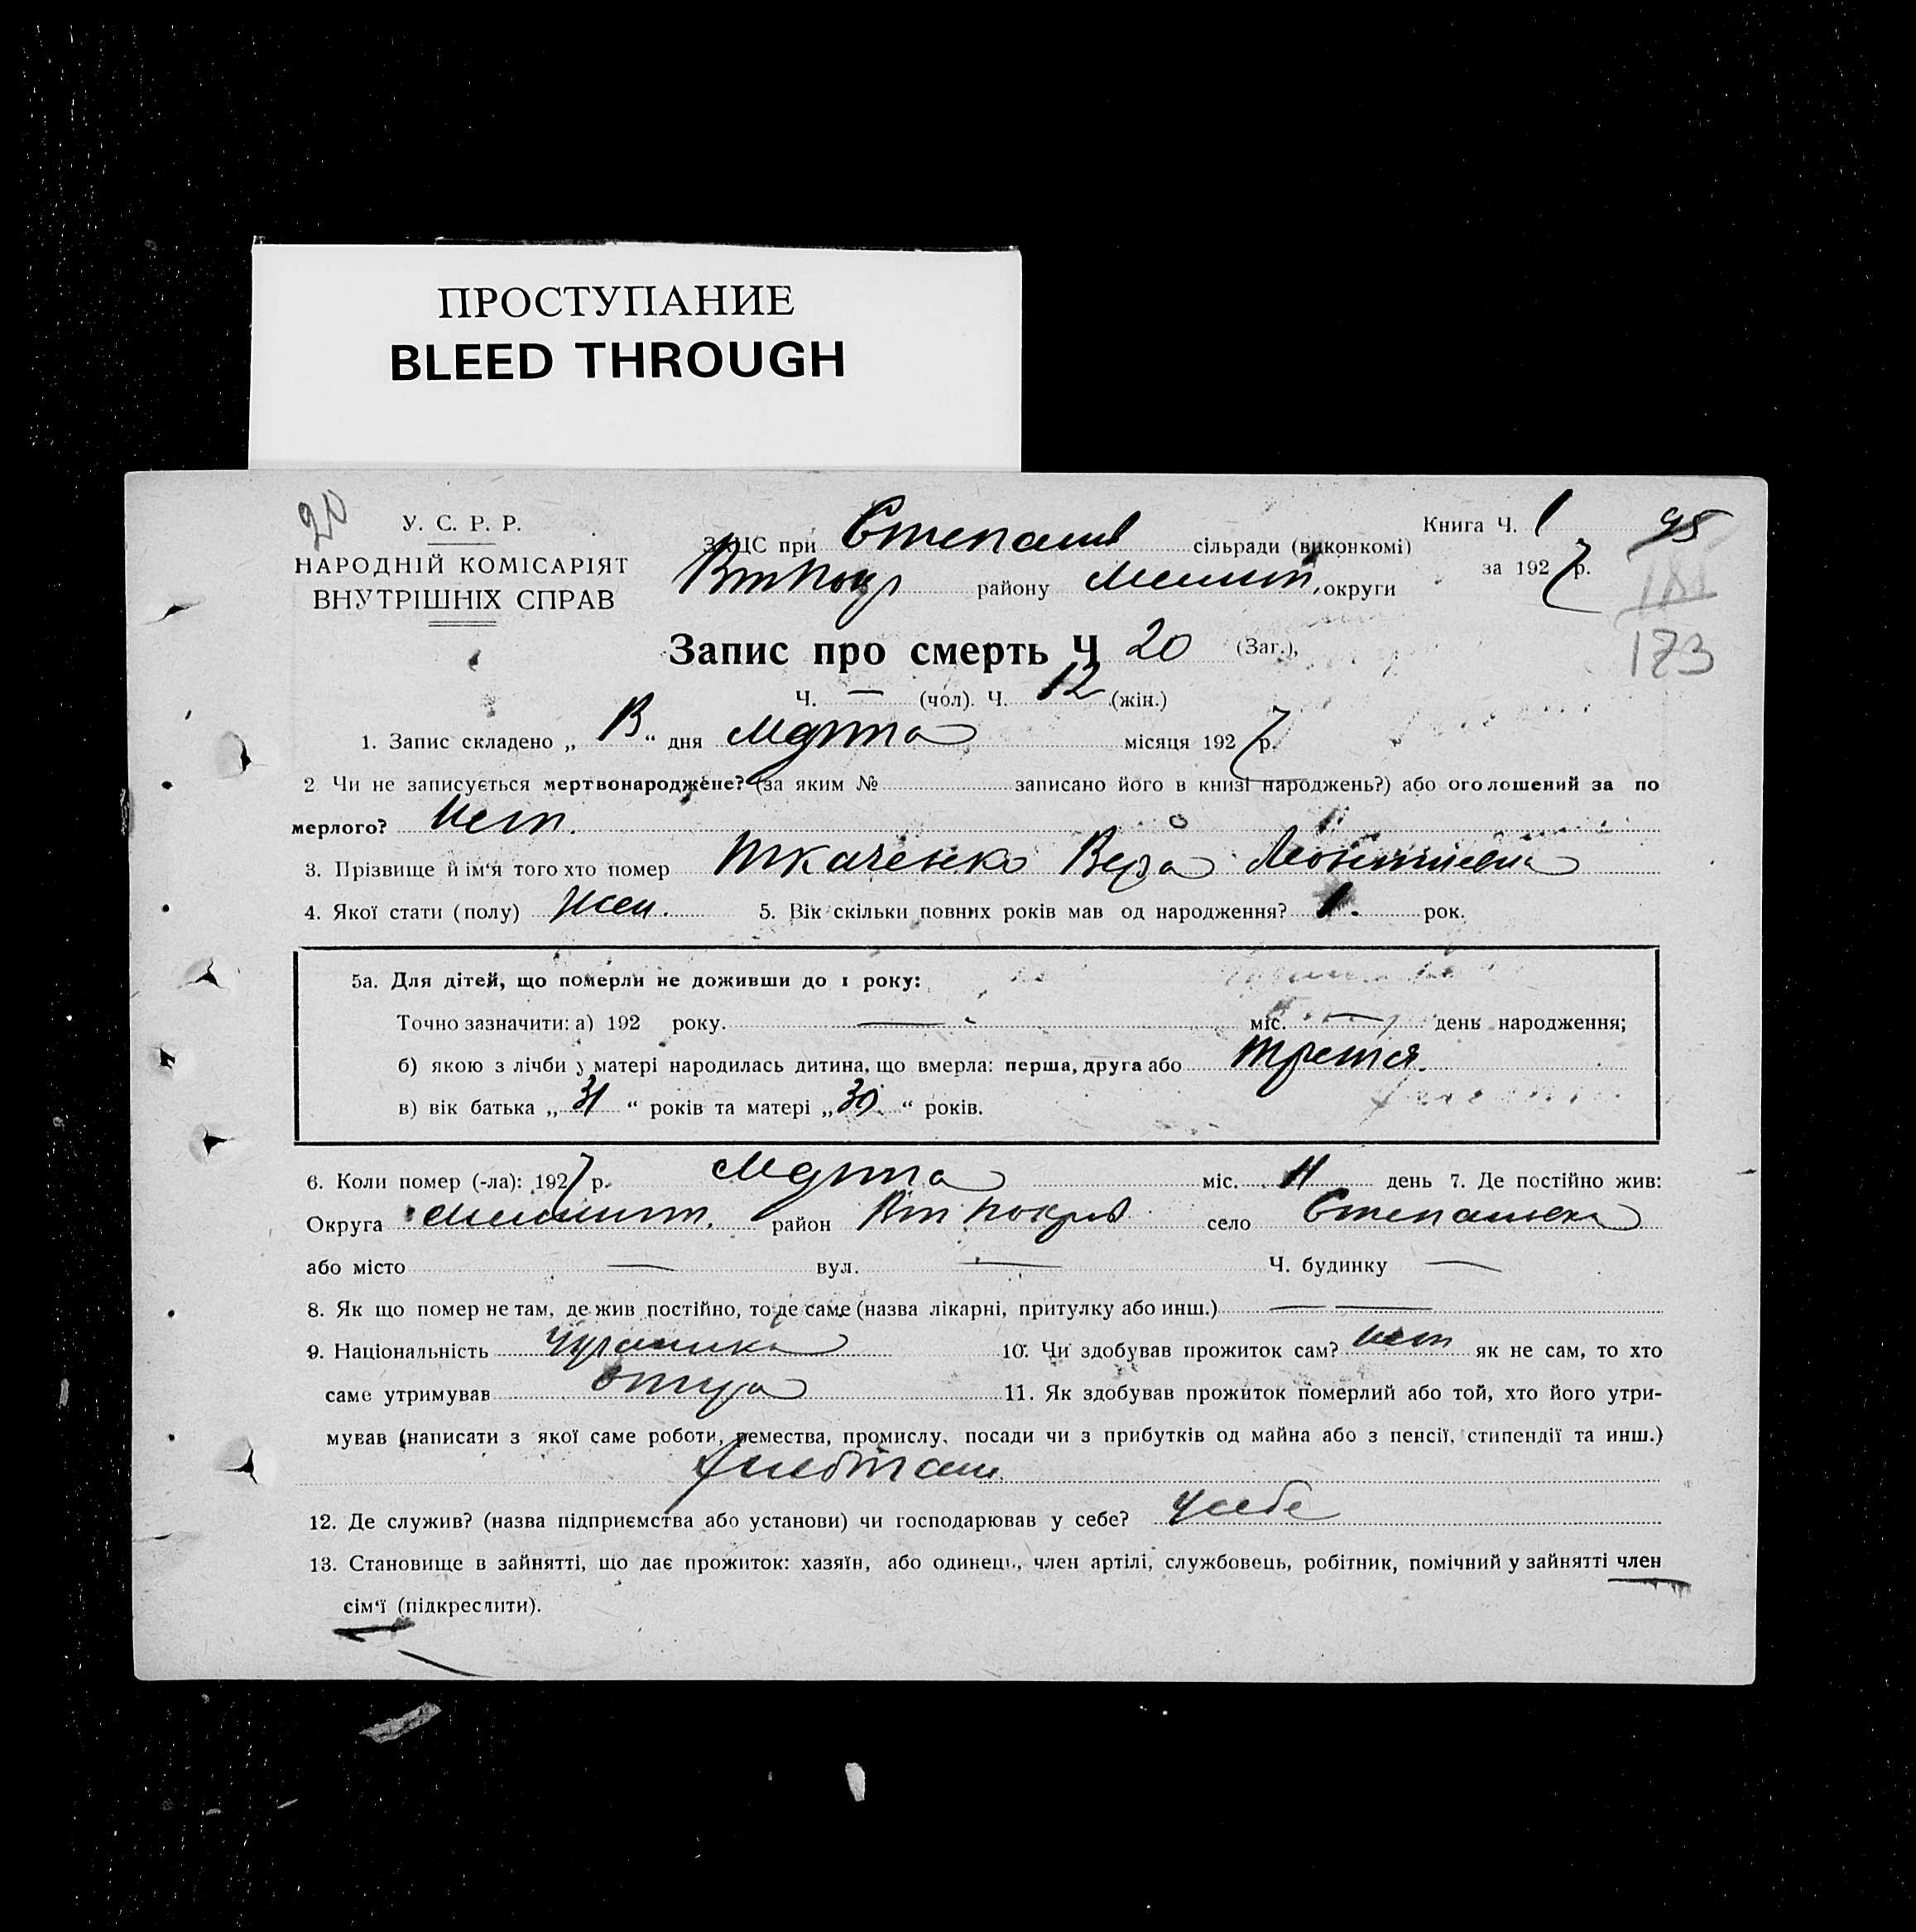 ПРОСТУПАНИЕ
BLEED THROUGH
20
У. С. Р. Р.
НАРОДНІЙ КОМІСАРІЯТ
ВНУТРІШНІХ СПРАВ
Книга Ч. 1
95
ЗАЦС при Степанів сільради (виконкомі)
району Мелит. округи
за 1927 р.
181
173
Запис про смерть Ч 20 (Заг.),
Ч. — (чол). Ч. 12 (жін.)
1. Запис складено „ “ дня Марта місяця 1927 р.
2 Чи не записується мертвонароджене? (за яким № записано його в книзі народжень?) або оголошений за по
мерлого? Нет.
3. Прізвище й ім'я того хто помер Ткаченко Вера Леонтиевна
4. Якої стати (полу) Жен. 5. Вік скільки повних років мав од народження? 1. рок.
5а. Для дітей, що померли не доживши до 1 року:
Точно зазначити: а) 192 року. — міс. — день народження;
б) якою з лічби у матері народилась дитина, що вмерла: перша, друга або третя.
в) вік батька „ 31 “ років та матері „ 30. “ років.
6. Коли помер (-ла): 1927 р. Марта міс. 11 день 7. Де постійно жив:
Округа Мелит. район Вт Покров село Степановка
або місто — вул. — Ч. будинку —
8. Як що помер не там, де жив постійно, то де саме (назва лікарні, притулку або инш.) — —
9. Національність 10. Чи здобував прожиток сам? нет як не сам, то хто
саме утримував отец 11. Як здобував прожиток померлий або той, хто його утри-
мував (написати з якої саме роботи, ремества, промислу, посади чи з прибутків од майна або з пенсії, стипендії та инш.)
12. Де служив? (назва підприємства або установи) чи господарював у себе? У себе
13. Становище в зайнятті, що дає прожиток: хазяїн, або одинець, член артілі, службовець, робітник, помічний у зайнятті член
сім'ї (підкреслити).